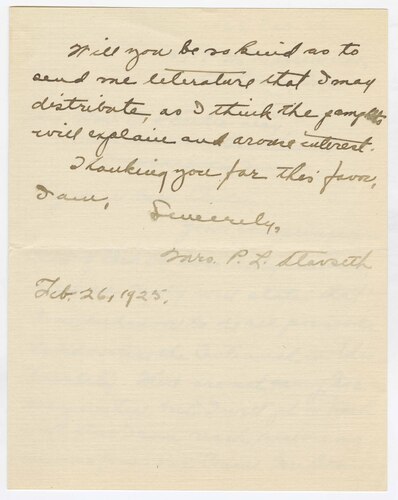 Will you be so kind as to
send me literature that I may
distribute, as I think the pamplets
will explain and arouse interest.
Thanking you for this favor,
I am, Sincerely,
Mrs. P. L. Stavseth
Feb. 26, 1925.